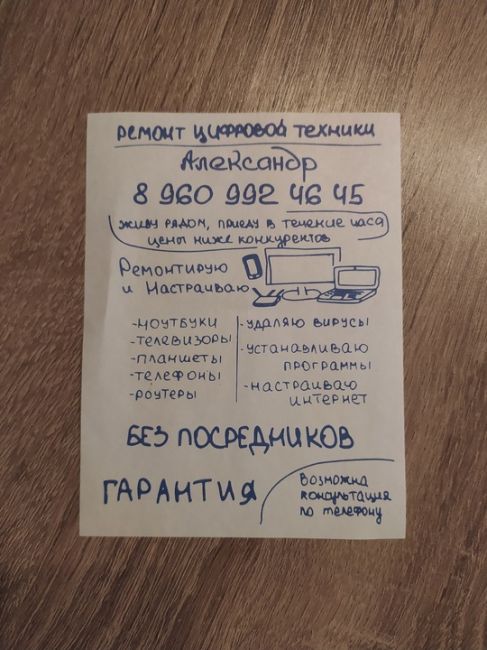 РЕМОНТ ЦИФРОВОЙ ТЕХНИКИ
Александр
8 960 992 46 45
живу рядом, приеду в течение часа
цены ниже конкурентов
Ремонтирую
и Настраиваю
-ноутбуки
-телевизоры
-планшеты
-телефоны
-роутеры
-удаляю вирусы
-устанавливаю
программы
-настраиваю
интернет
БЕЗ ПОСРЕДНИКОВ
ГАРАНТИЯ
Возможна
консультация
по телефону